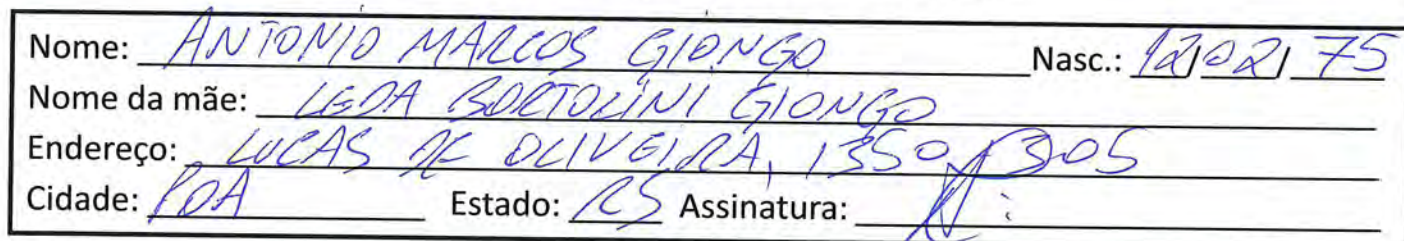 Nome: ANTONIO MARCOS GIONGO Nasc.: 12/02/75
Nome da mãe: LEDA BORTOLINI GIONGO
Endereço: LUCAS DE OLIVEIRA, 1350, 305
Cidade: POA Estado: RS Assinatura: